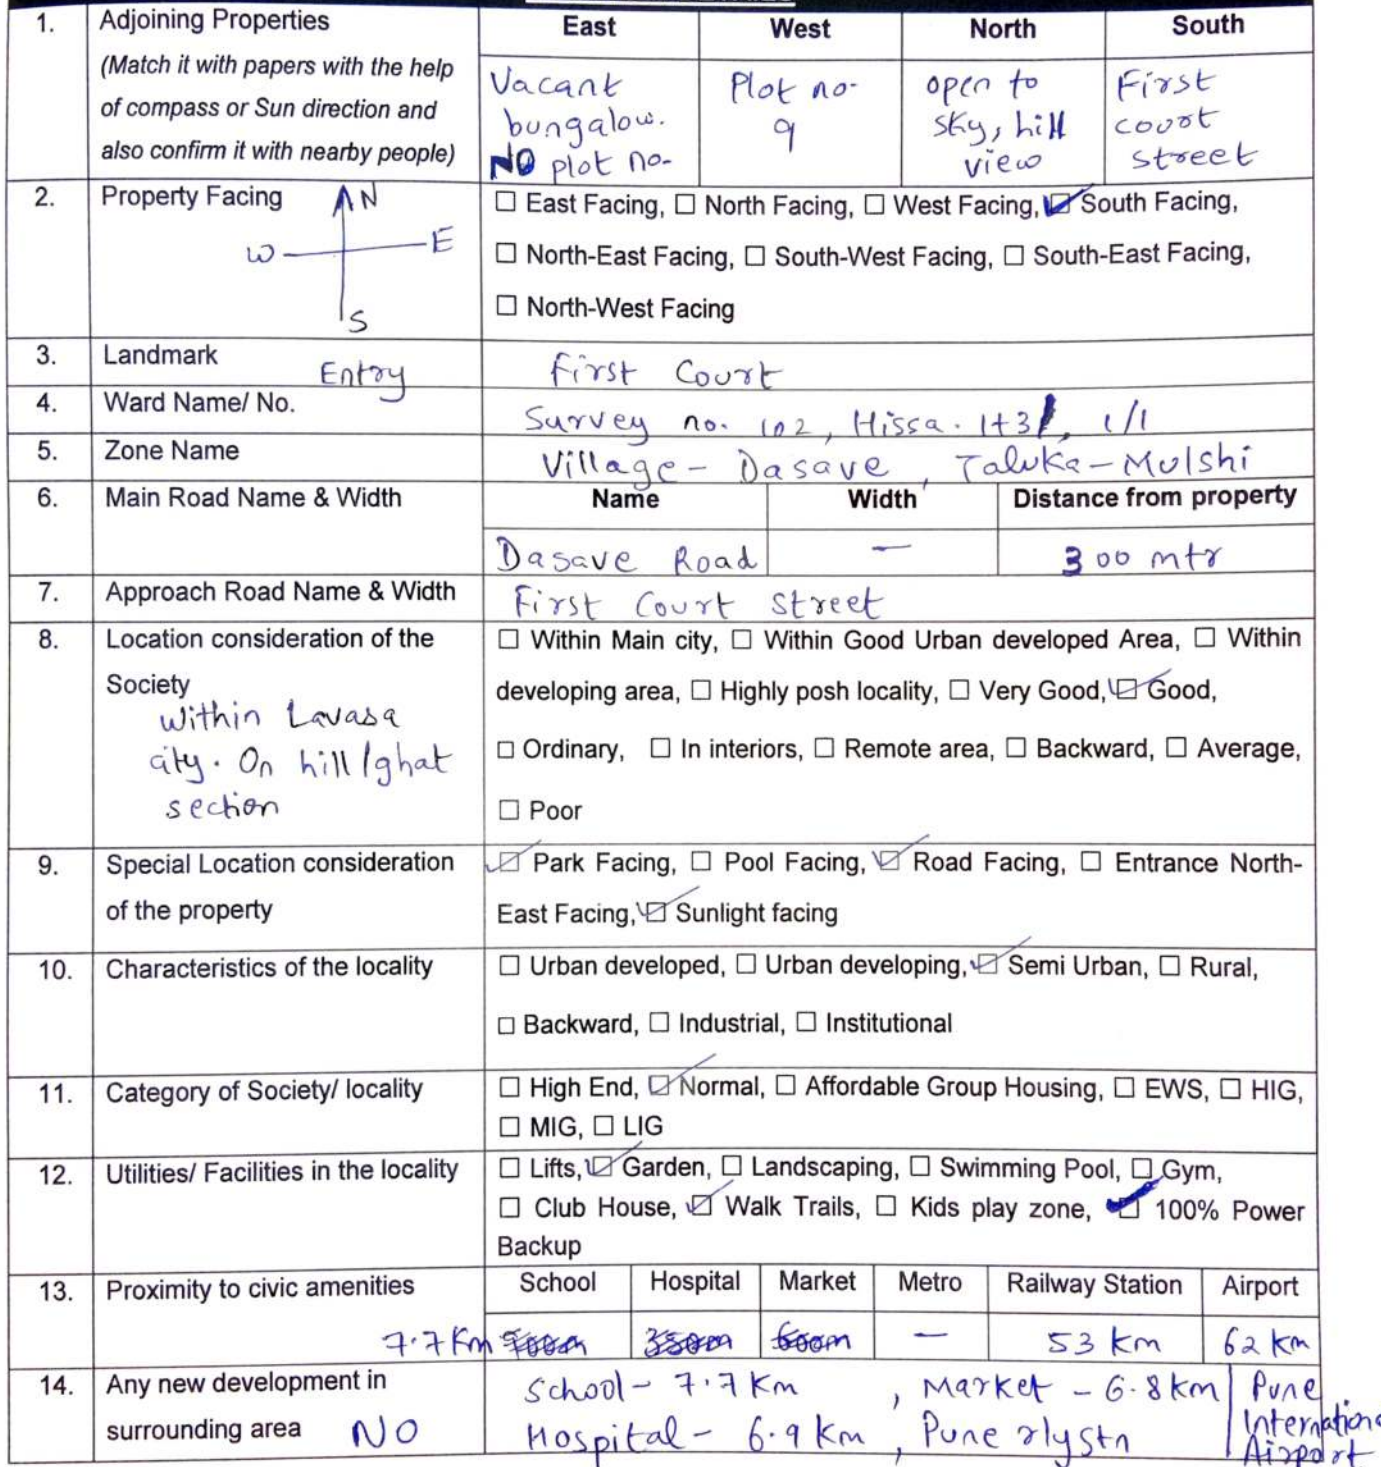 1. Adjoining Properties East West North South
(Match it with papers with the help
of compass or Sun direction and
also confirm it with nearby people)
Vacant
bungalow.
NO plot no-
Plot no-
9
open to
sky, hill
view
First
court
street
2. Property Facing
N
W E
S
☐ East Facing, ☐ North Facing, ☐ West Facing, ☑ South Facing,
☐ North-East Facing, ☐ South-West Facing, ☐ South-East Facing,
☐ North-West Facing
3. Landmark Entry First Court
4. Ward Name/ No. Survey no. 102, Hissa. 1+3, 1/1
5. Zone Name Village - Dasave, Taluka - Mulshi
6. Main Road Name & Width Name Width Distance from property
Dasave Road — 300 mtr
7. Approach Road Name & Width First Court Street
8. Location consideration of the
Society
within Lavasa
city. On hill/ghat
section
☐ Within Main city, ☐ Within Good Urban developed Area, ☐ Within
developing area, ☐ Highly posh locality, ☐ Very Good, ☑ Good,
☐ Ordinary, ☐ In interiors, ☐ Remote area, ☐ Backward, ☐ Average,
☐ Poor
9. Special Location consideration
of the property
☑ Park Facing, ☐ Pool Facing, ☑ Road Facing, ☐ Entrance North-
East Facing, ☑ Sunlight facing
10. Characteristics of the locality
☐ Urban developed, ☐ Urban developing, ☑ Semi Urban, ☐ Rural,
☐ Backward, ☐ Industrial, ☐ Institutional
11. Category of Society/ locality
☐ High End, ☑ Normal, ☐ Affordable Group Housing, ☐ EWS, ☐ HIG,
☐ MIG, ☐ LIG
12. Utilities/ Facilities in the locality
☐ Lifts, ☑ Garden, ☐ Landscaping, ☐ Swimming Pool, ☐ Gym,
☐ Club House, ☑ Walk Trails, ☐ Kids play zone, ☑ 100% Power
Backup
13. Proximity to civic amenities School Hospital Market Metro Railway Station Airport
7.7 Km — 53 km 62 km
14. Any new development in
surrounding area NO
School - 7.7 Km, Market - 6.8 km
Hospital - 6.9 km, Pune rlystn
Pune
Internationa
Airport